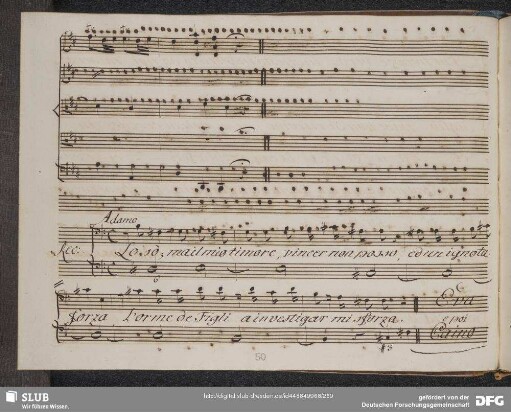 Adamo
Rec: Lo so, ma il mio timore, vincer non posso, ed un ignota
forza l'orme de Figli a investigar mi sforza. Eva
e poi
Caino
50
SLUB
Wir führen Wissen.
gefördert von der
Deutschen Forschungsgemeinschaft
DFG